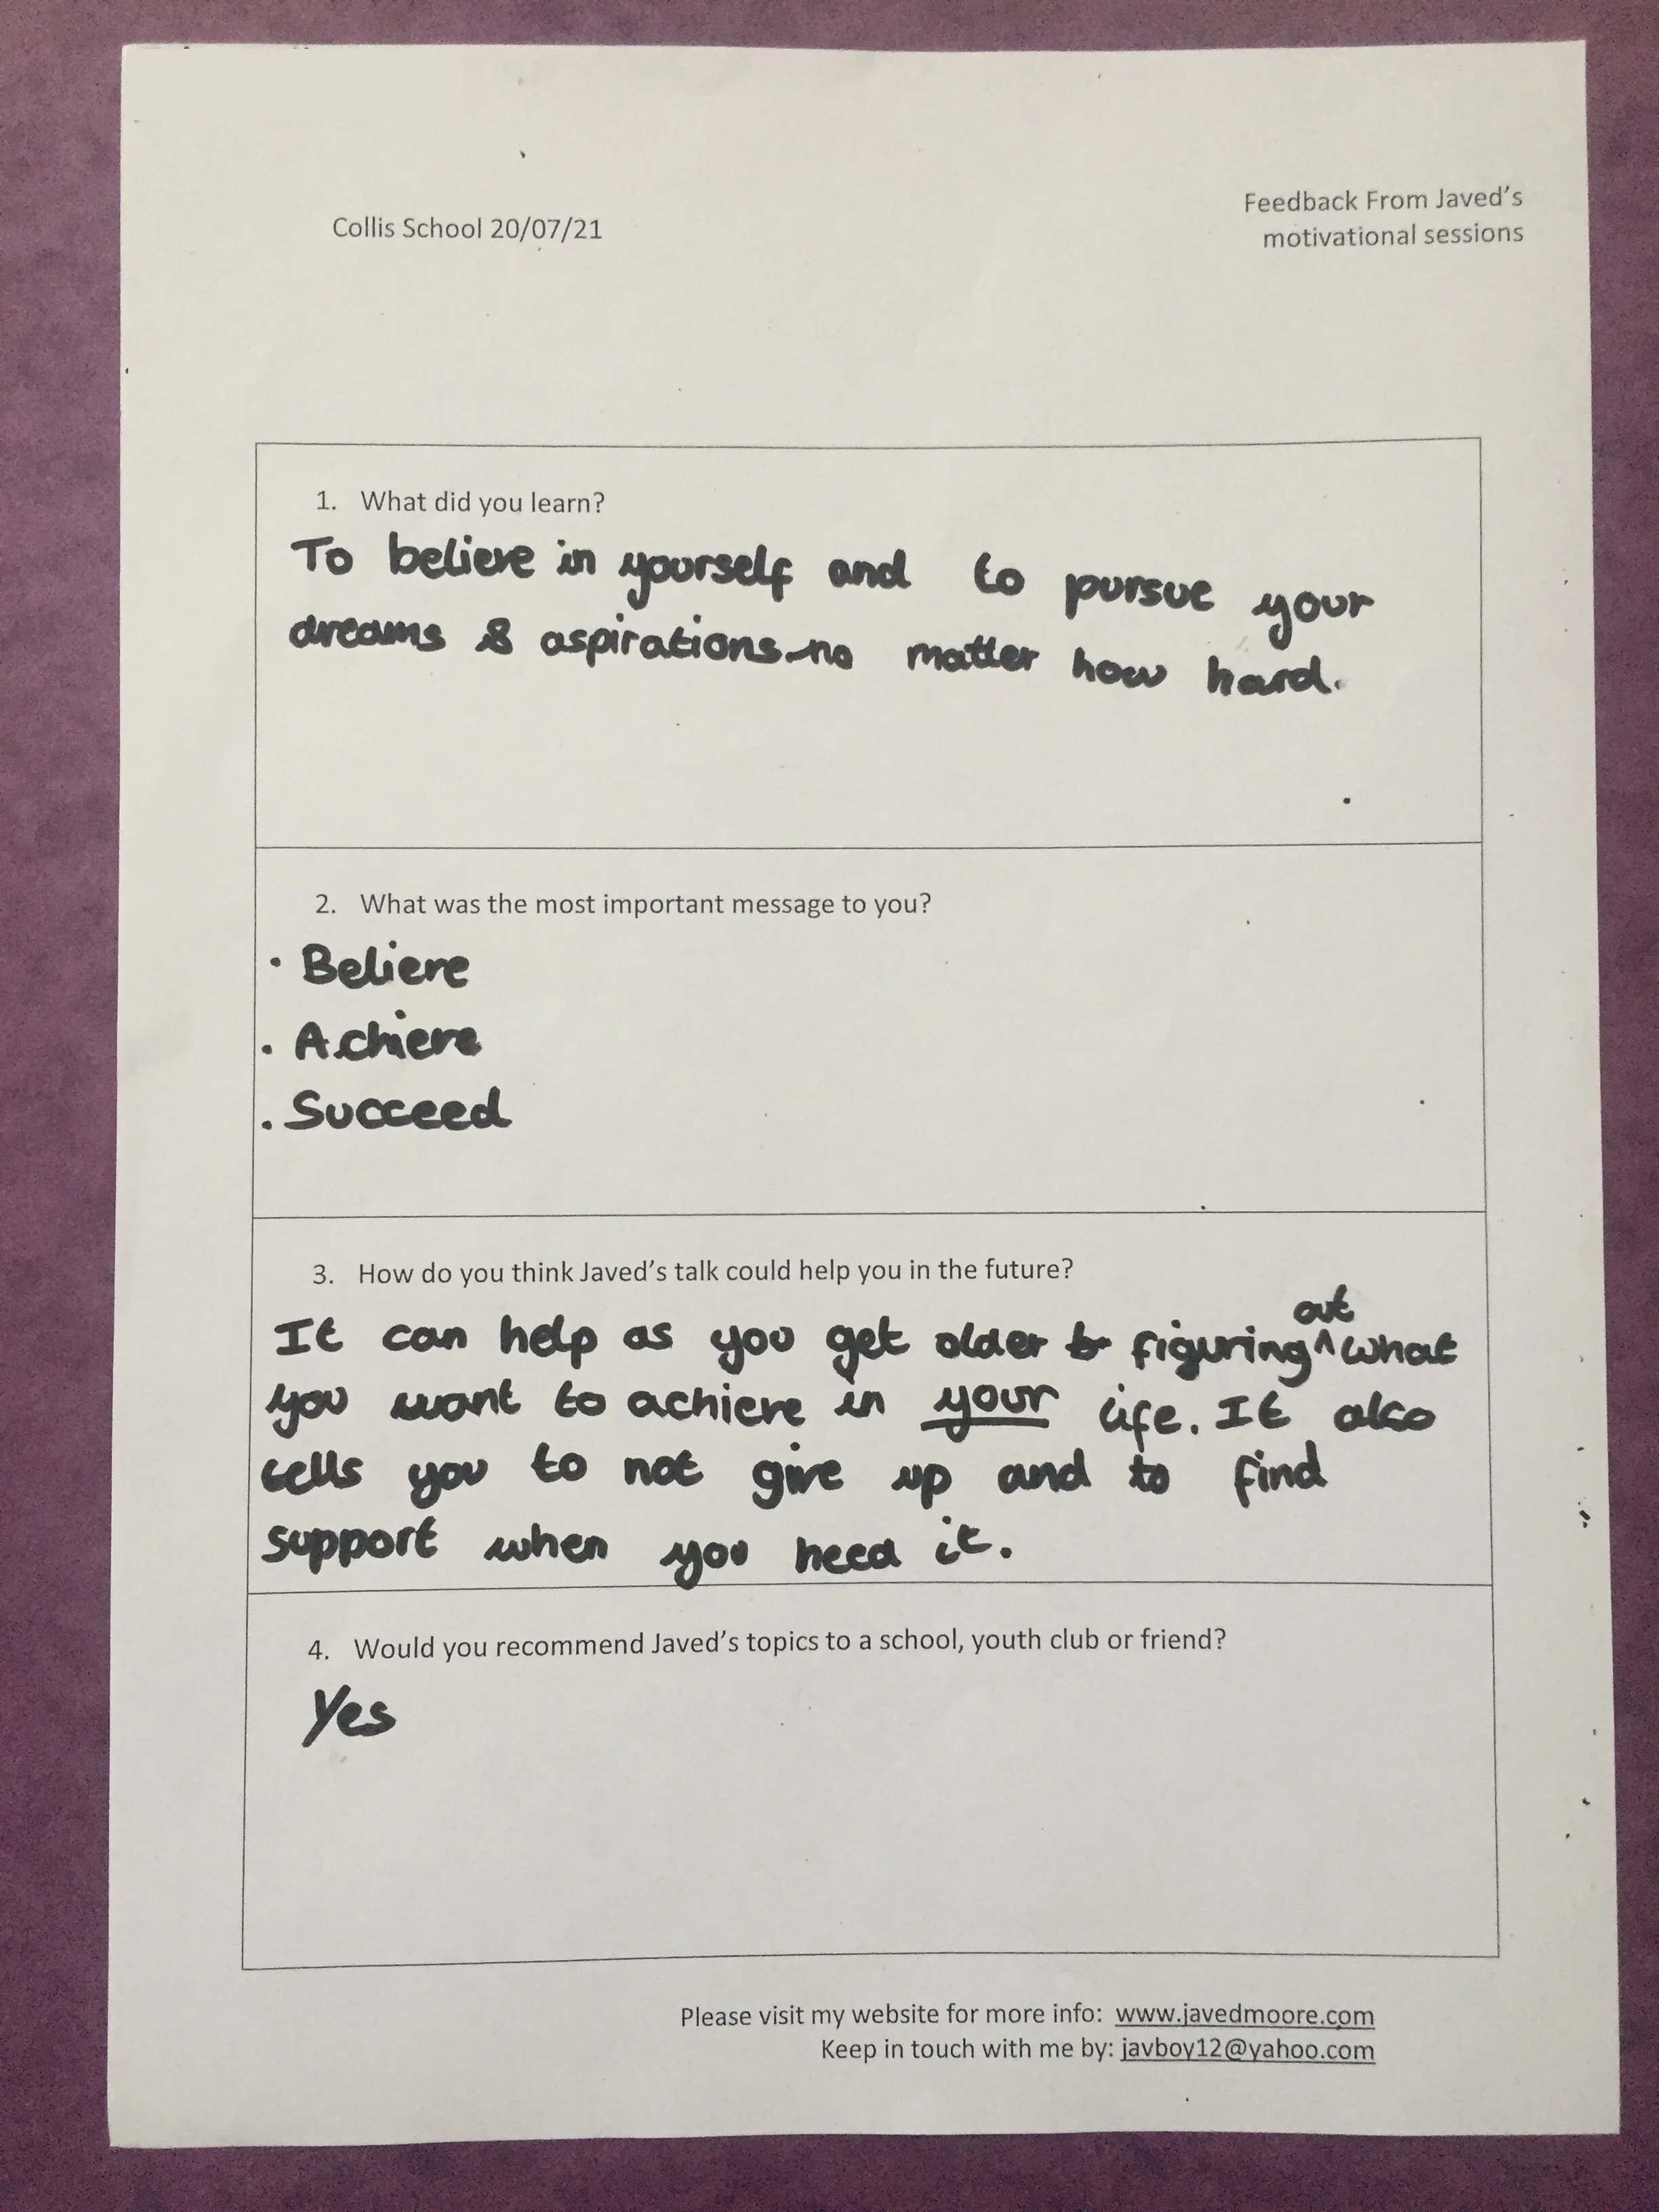 Collis School 20/07/21
Feedback From Javed's
motivational sessions
1. What did you learn?
To believe in yourself and to pursue your
dreams & aspirations no matter how hard.
2. What was the most important message to you?
· Believe
· Achieve
. Succeed
3. How do you think Javed's talk could help you in the future?
It can help as you get older figuring ^out what
you want to achieve in your life. It also
tells you to not give up and to find
support when you need it.
4. Would you recommend Javed's topics to a school, youth club or friend?
Yes
Please visit my website for more info: www.javedmoore.com
Keep in touch with me by: javboy12@yahoo.com